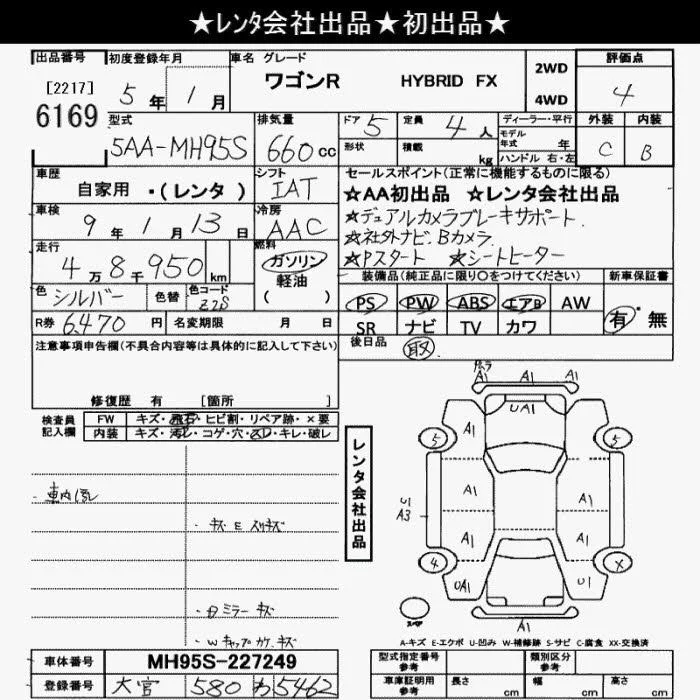 ★レンタ会社出品★初出品★
出品番号 初度登録年月 車名 グレード 評価点
[2217]
6169
5 年 1 月
ワゴンR HYBRID FX
2WD
4WD
4
型式 排気量 ドア 5 定員 4 人 ディーラー・平行 外装 内装
5AA-MH95S 660 cc
形状 積載 kg
モデル年式 年
ハンドル 右・左
C B
車歴 シフト セールスポイント(正常に機能するものに限る)
自家用 ・(レンタ ) IAT
★AA初出品 ★レンタ会社出品
車検 冷房
9 年 1 月 13 日 AAC
☆デュアルカメラブレーキサポート
☆社外ナビ、Bカメラ
☆Pスタート ☆シートヒーター
走行 燃料
4 万 8 千 950 km
ガソリン
軽油
( )
装備品(純正品に限り○をつけてください) 新車保証書
色 シルバー 色替 色コード Z2S
PS PW ABS エアB AW
SR ナビ TV カワ
有・無
R券 6470 円 名変期限 月 日
後日品 取
注意事項申告欄(不具合内容等は具体的に記入して下さい)
修復歴 有 [箇所 ]
検査員記入欄
FW キズ・飛石・ヒビ割・リペア跡・×要
内装 キズ・汚レ・コゲ・穴・スレ・キレ・破レ
・車内汚レ
・キズ E スリキズ
・Bミラー キズ
・Wキャップ ガケ、キズ
レンタ会社出品
A1 A1 A1
UA1
5 5
A1 A1
U1
A3
A1 A1
4 X
UA1 U1
A1
スペア
A-キズ E-エクボ U-凹み W-補修跡 S-サビ C-腐食 XX-交換済
車体番号 MH95S-227249
登録番号 大宮 580 わ 5462
型式指定番号 参考 類別区分 参考
車庫証明用 参考 長さ cm 幅 cm 高さ cm